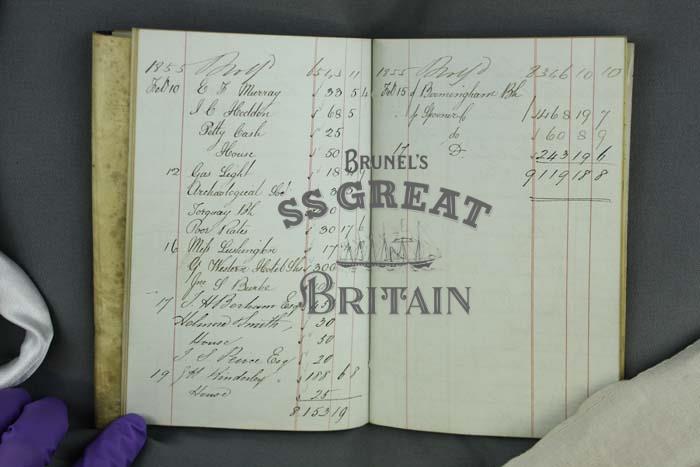 1855
Feb 10 E F Murray 33 5 4
J C Heddon 68 5
Petty Cash 25
House 50
12 Gas Light 18
Archaeological
Torquay Bk
Poor Rates 30 17 6
16 Miss Lushington 17
Gt Western Hotel 300
Jno S Burke
17 J H Borham Esq 45
Holmes Smith, 30
House 50
J S Peirce Esq 20
19 Kinderley 188 6 8
House 25
8153 19
1855 8366 10 10
Feb 15 Birmingham Bk
Spooner 468 19 7
do 60 8 9
17 Do 243 19 6
9119 18 8
BRUNEL'S
SS GREAT
BRITAIN